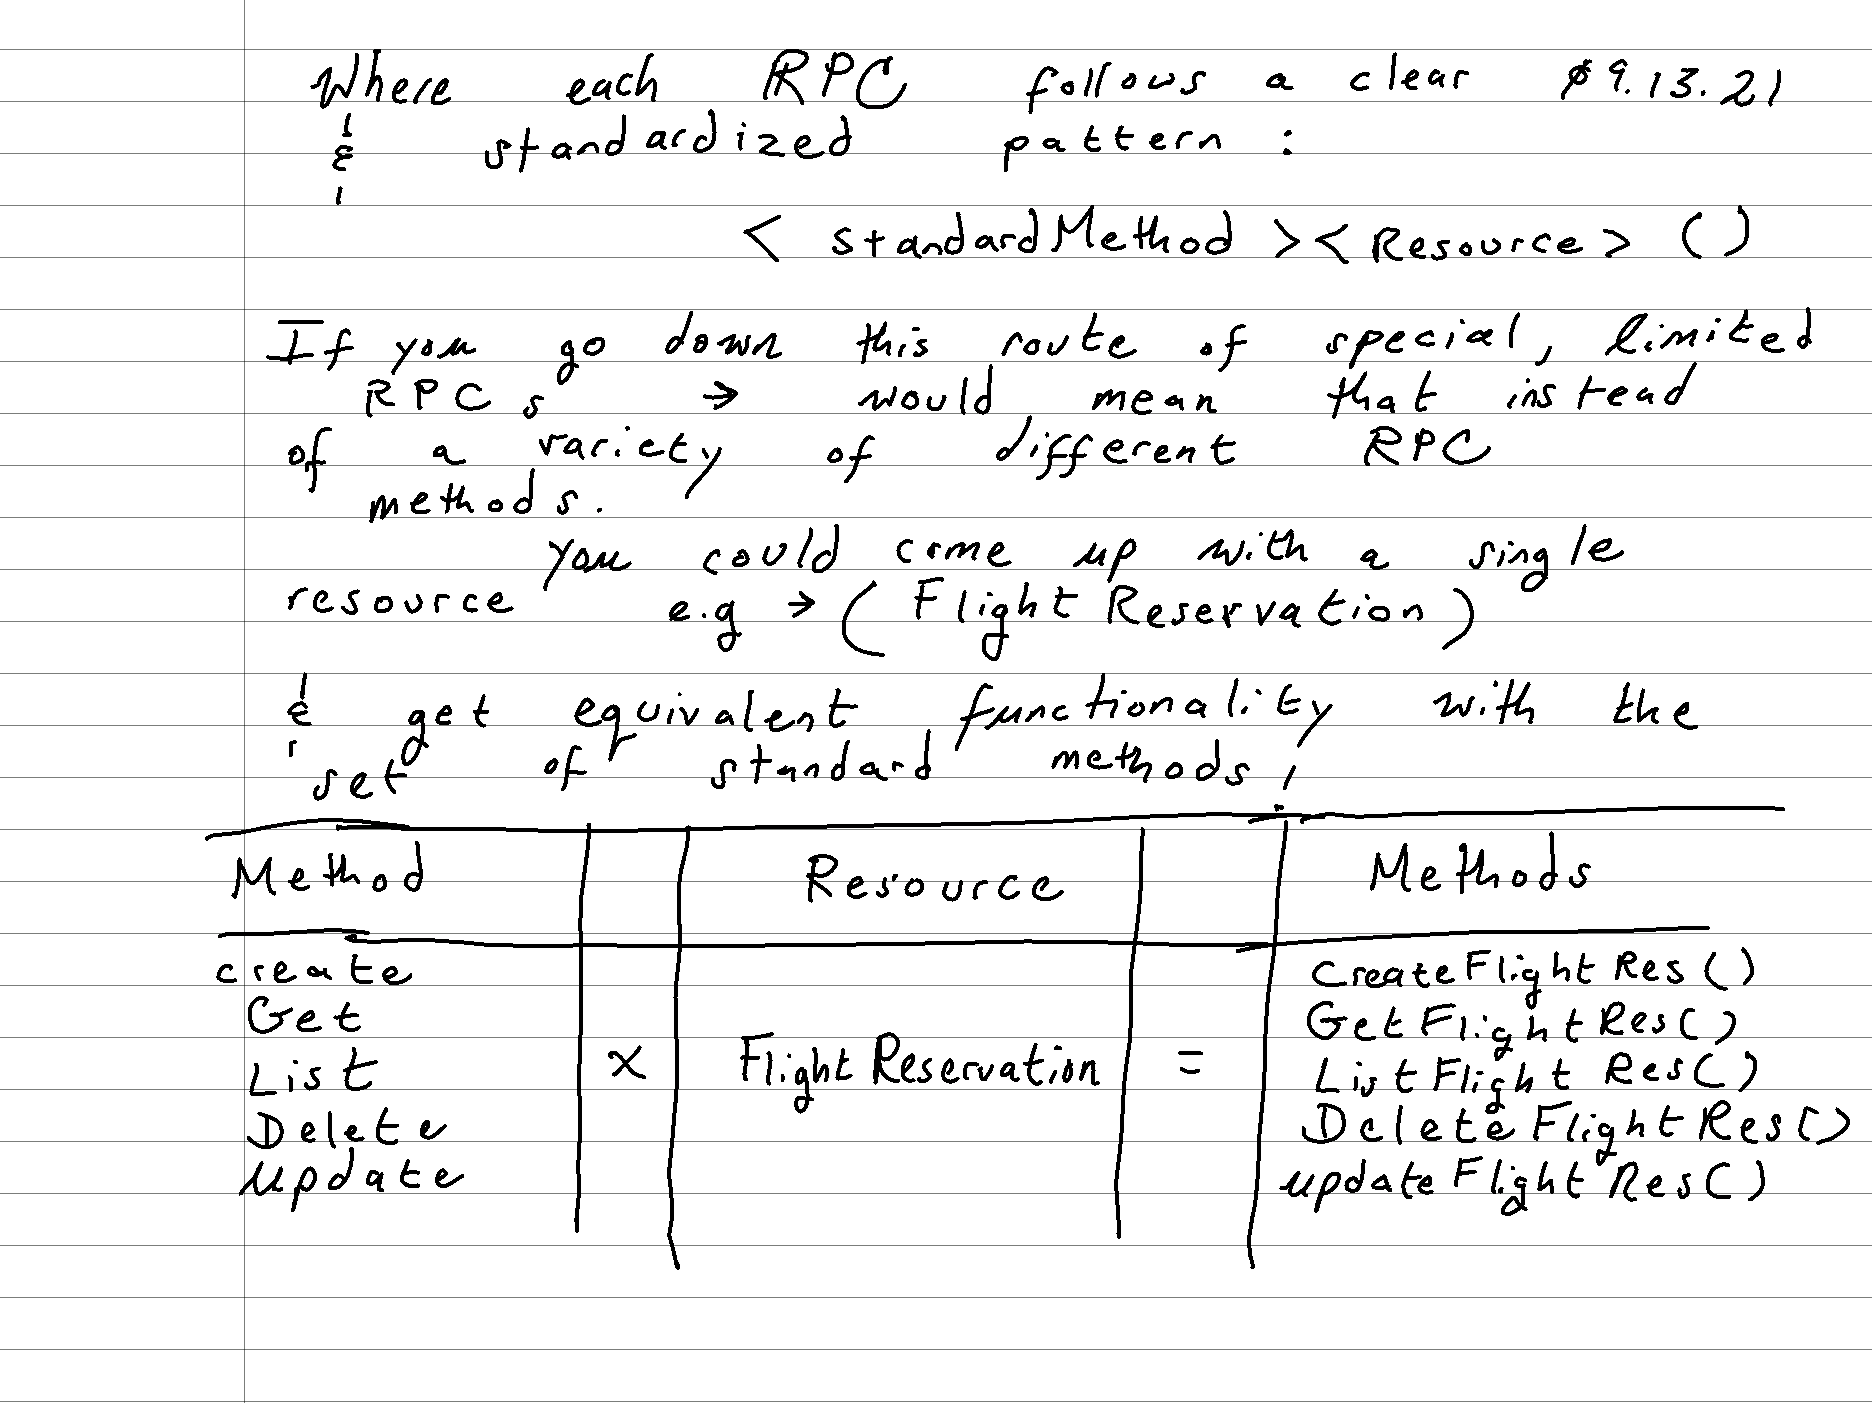 Where each RPC follows a clear $9.13.21
& standardized pattern :
< standardMethod >< Resource > ()
If you go down this route of special, limited
RPCs → would mean that instead
of a variety of different RPC
methods.
you could come up with a single
resource e.g → ( FlightReservation )
& get equivalent functionality with the
set of standard methods ;
Method Resource Methods
create CreateFlightRes()
Get GetFlightRes()
List x FlightReservation = ListFlightRes()
Delete DeleteFlightRes()
update updateFlightRes()